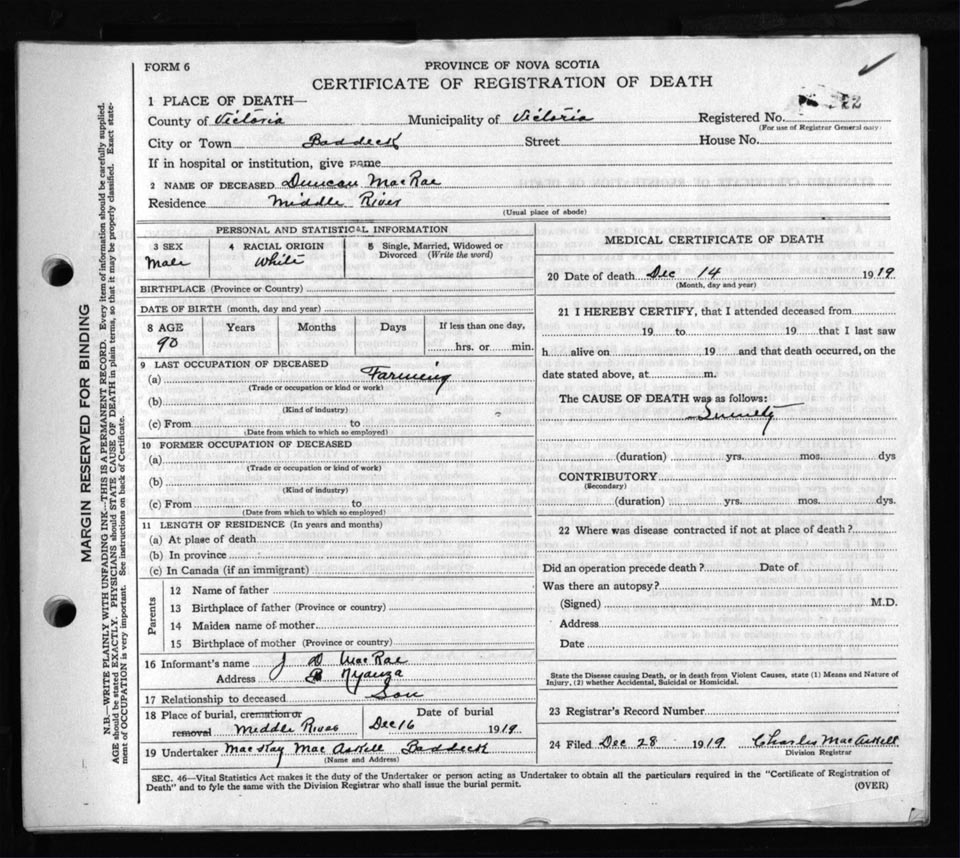 FORM 6
PROVINCE OF NOVA SCOTIA
CERTIFICATE OF REGISTRATION OF DEATH
1 PLACE OF DEATH—
County of Victoria Municipality of Victoria Registered No. 22
(For use of Registrar General only)
City or Town Baddeck Street House No.
If in hospital or institution, give name
2 NAME OF DECEASED Duncan MacRae
Residence Middle River
(Usual place of abode)
PERSONAL AND STATISTICAL INFORMATION
3 SEX 4 RACIAL ORIGIN 5 Single, Married, Widowed or
Divorced (Write the word)
Male White
BIRTHPLACE (Province or Country)
DATE OF BIRTH (month, day and year)
8 AGE Years Months Days If less than one day,
90 hrs. or min.
9 LAST OCCUPATION OF DECEASED
(a) Farming
(Trade or occupation or kind or work)
(b)
(Kind of industry)
(c) From to
(Date from which to which so employed)
10 FORMER OCCUPATION OF DECEASED
(a)
(Trade or occupation or kind of work)
(b)
(Kind of industry)
(c) From to
(Date from which to which so employed)
11 LENGTH OF RESIDENCE (In years and months)
(a) At place of death
(b) In province
(c) In Canada (if an immigrant)
Parents
12 Name of father
13 Birthplace of father (Province or country)
14 Maiden name of mother
15 Birthplace of mother (Province or country)
16 Informant's name J D MacRae
Address Nyanza
17 Relationship to deceased Son
18 Place of burial, cremation or Date of burial
removal Middle River Dec 16 1919
19 Undertaker MacKay MacAskell Baddeck
(Name and Address)
MEDICAL CERTIFICATE OF DEATH
20 Date of death Dec 14 1919
(Month, day and year)
21 I HEREBY CERTIFY, that I attended deceased from
19 to 19 that I last saw
h alive on 19 and that death occurred, on the
date stated above, at m.
The CAUSE OF DEATH was as follows:
(duration) yrs. mos. dys
CONTRIBUTORY
(Secondary)
(duration) yrs. mos. dys.
22 Where was disease contracted if not at place of death?
Did an operation precede death? Date of
Was there an autopsy?
(Signed) M.D.
Address
Date
State the Disease causing Death, or in death from Violent Causes, state (1) Means and Nature of
Injury, (2) whether Accidental, Suicidal or Homicidal.
23 Registrar's Record Number
24 Filed Dec 28 1919 Charles MacAskell
Division Registrar
SEC. 46—Vital Statistics Act makes it the duty of the Undertaker or person acting as Undertaker to obtain all the particulars required in the "Certificate of Registration of
Death" and to fyle the same with the Division Registrar who shall issue the burial permit.
(OVER)
MARGIN RESERVED FOR BINDING
N.B.—WRITE PLAINLY WITH UNFADING INK—THIS IS A PERMANENT RECORD. Every item of information should be carefully supplied.
AGE should be stated EXACTLY. PHYSICIANS should STATE CAUSE OF DEATH in plain terms, so that it may be properly classified. Exact state-
ment of OCCUPATION is very important. See instructions on back of Certificate.